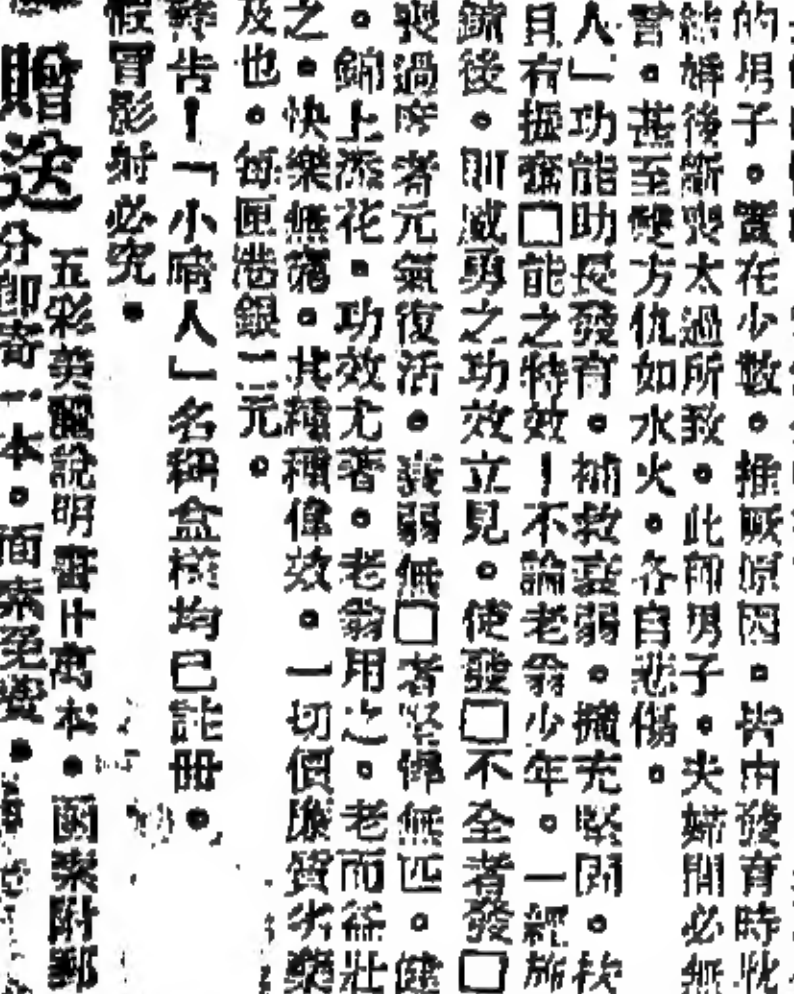 的男子。實在少數。推厥原因。皆由發育時戕
結婚後斵喪太過所致。此卽男子。夫婦間必無
言。甚至雙方仇如水火。各自悲傷。
人」功能助長發育。補救衰弱。擴充堅閉。故
具有振奮□能之特效！不論老翁少年。一經施
後。則威勇之功效立見。使發□不全者發□
喪過度者元氣復活。衰弱無□者堅偉無匹。健
。錦上添花。功效尤著。老翁用之。老而益壯
之。快樂無窮。其種種偉效。一切價廉質劣藥
及也。每匣港銀二元。
告！「小暗人」名稱盒樣均已註册。
假冒影射必究。
贈送
五彩美麗說明書廿萬本。函索附郵
分卽寄一本。面索免費。